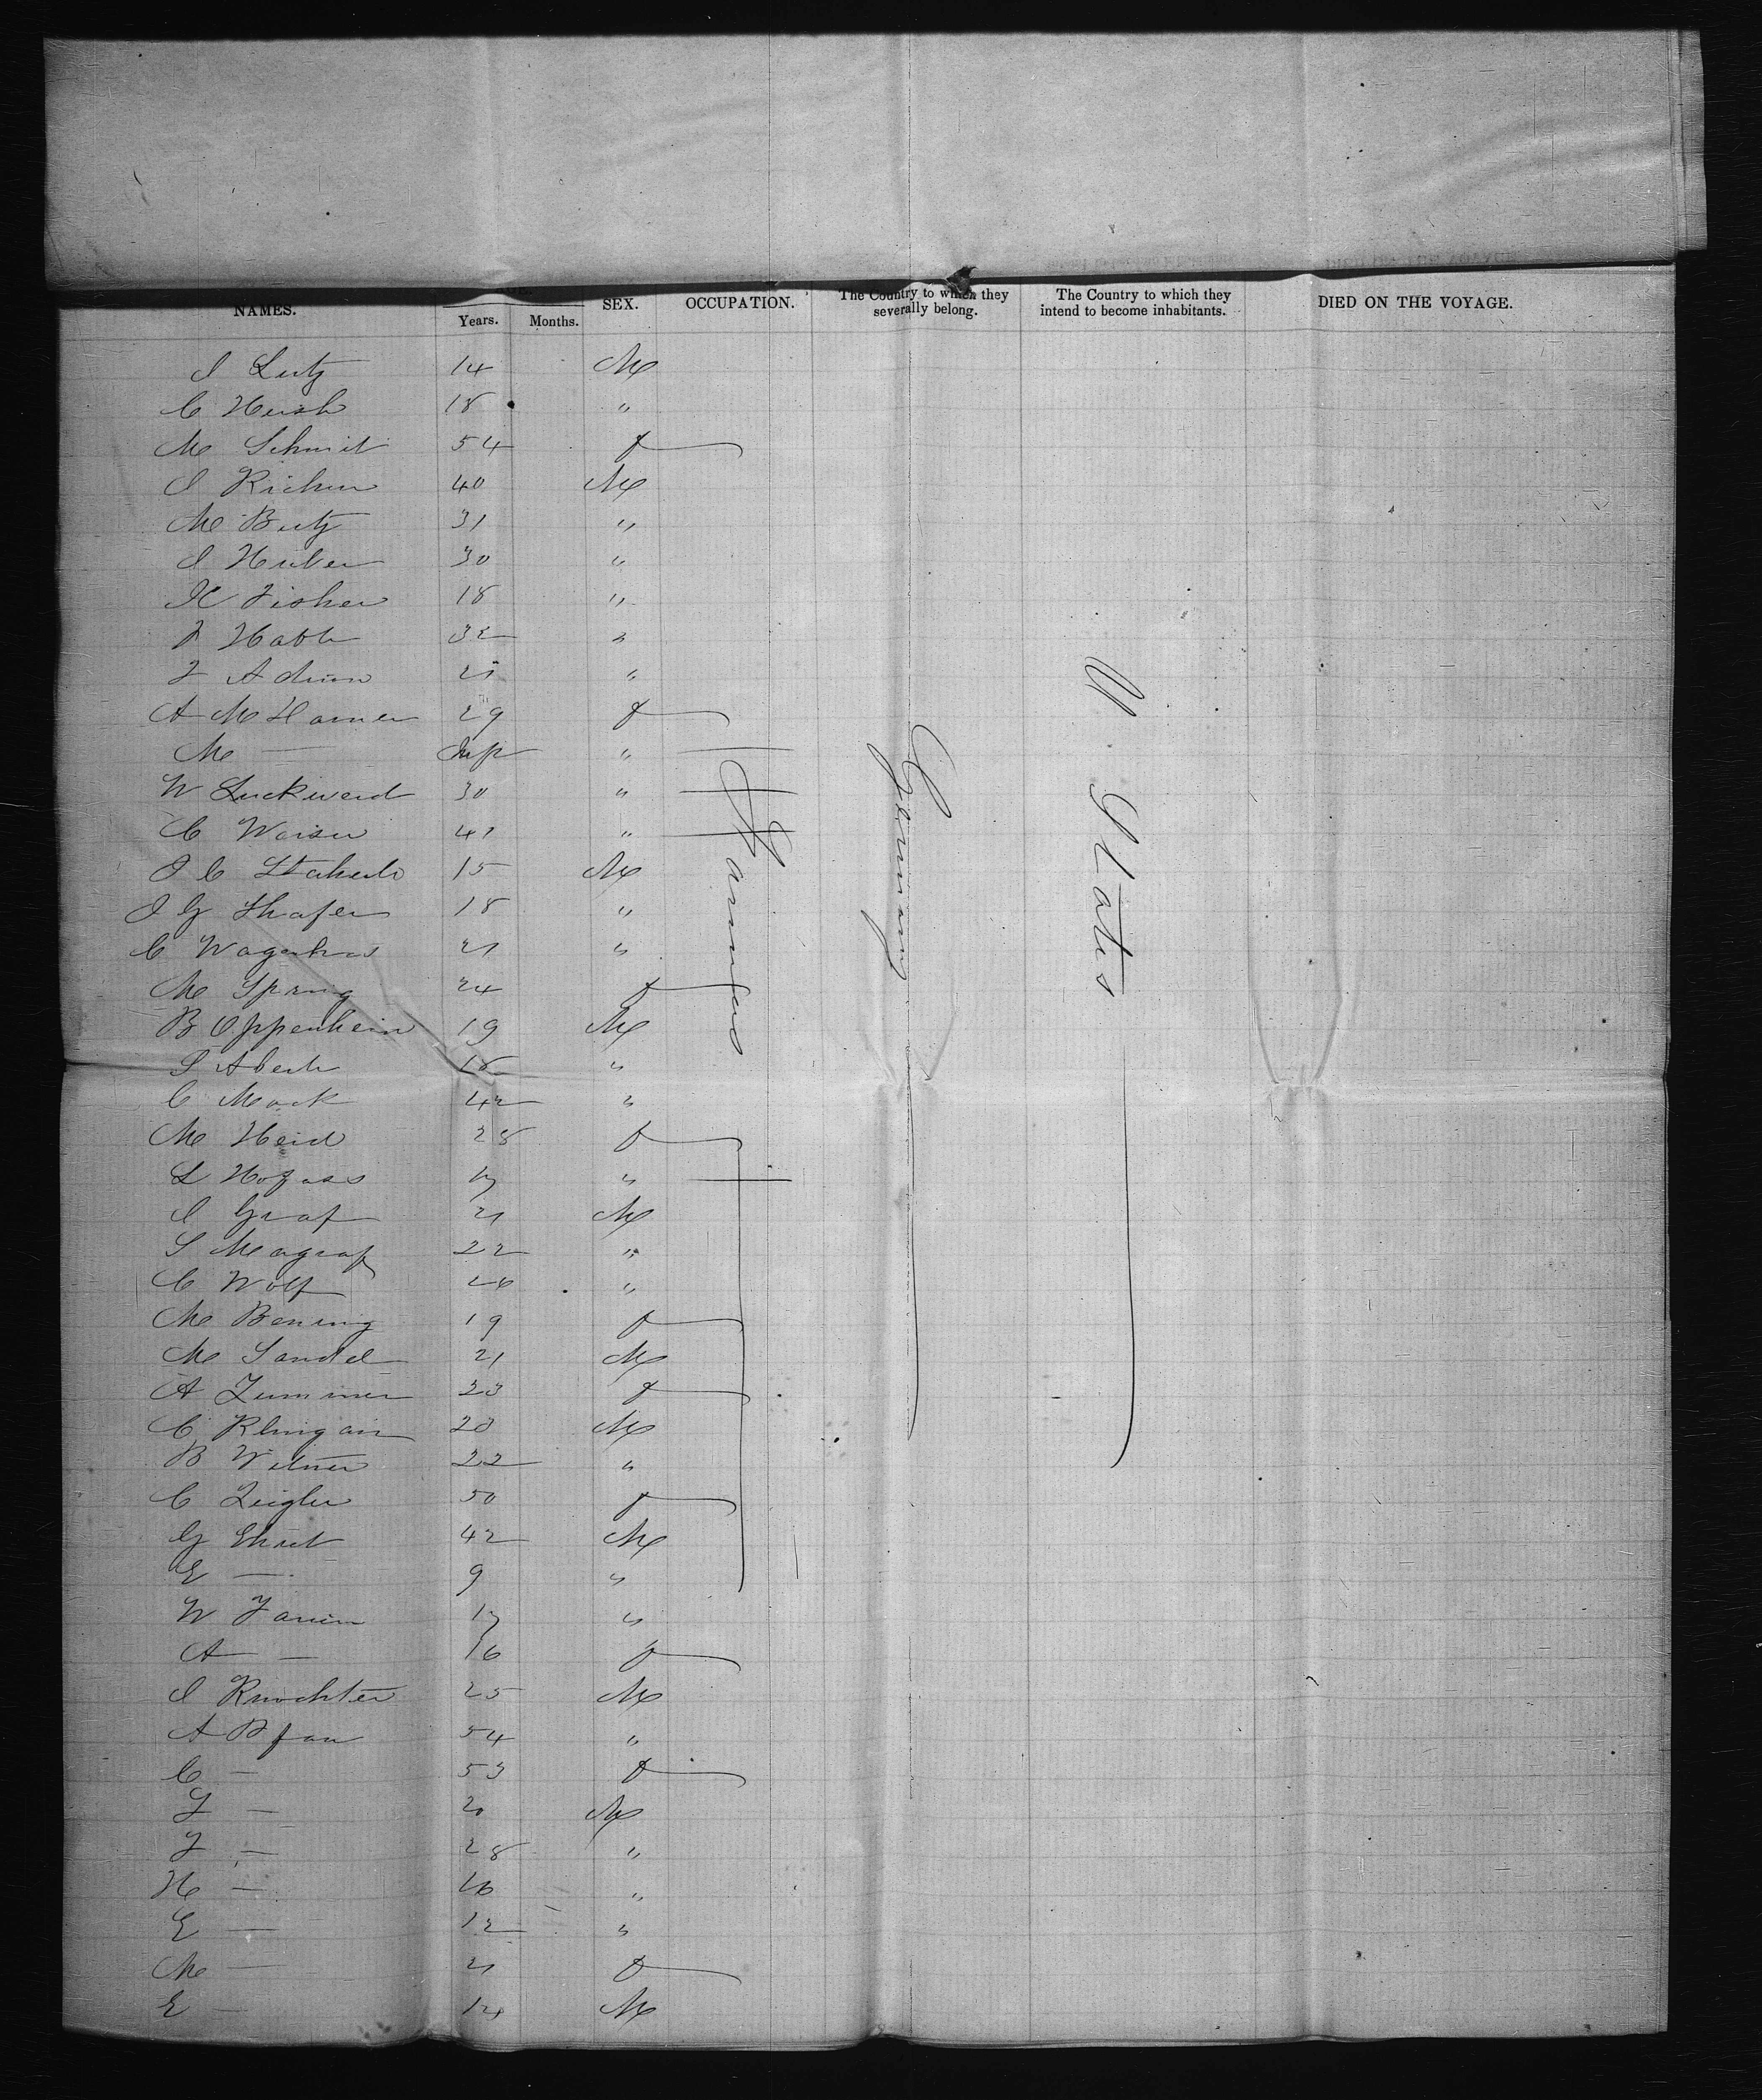 NAMES. Years. Months. SEX. OCCUPATION. The Country to which they severally belong. The Country to which they intend to become inhabitants. DIED ON THE VOYAGE.
I Lutz 14 M
C Hersh 18 "
M Schmit 54 f
I Richen 40 M
M Butz 31 "
I Huber 30 "
H Fisher 18 "
F Hable 32 "
F Adrian 21 "
A M Hamen 29 f
M — Inft "
W Luckward 30 "
C Waisen 41 "
I C 15 M
I G Shafer 18 "
C 21 "
M Spring 24 f
B Oppenheim 19 M
S Aberle 18 "
C Mack 42 "
M Heid 28 f
L Hofass 17 "
I Graf 21 M
S Magraf 22 "
C Wolf 26 "
M Bening 19 f
M Sandel 21 M
A Zummer 23 f
C Klingan 20 M
B Witmer 22 "
C Zeigler 50 f
G Ehret 42 M
E — 9 "
W 17 "
A — 16 f
I Knochter 25 M
A Pfau 54 "
C — 53 f
F — 20 M
F — 28 "
H — 16 "
E — 12 "
M — 21 f
E — 14 M
Farmers
Germany
U. States